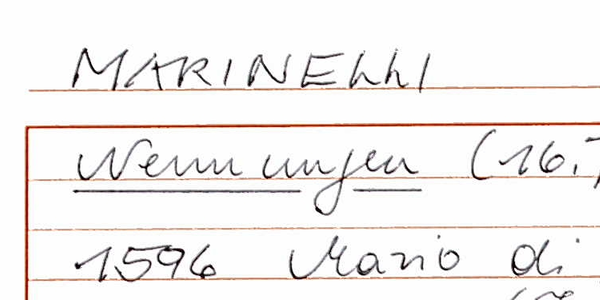 MARINELLI
Nennungen (16.
1596 Mario di